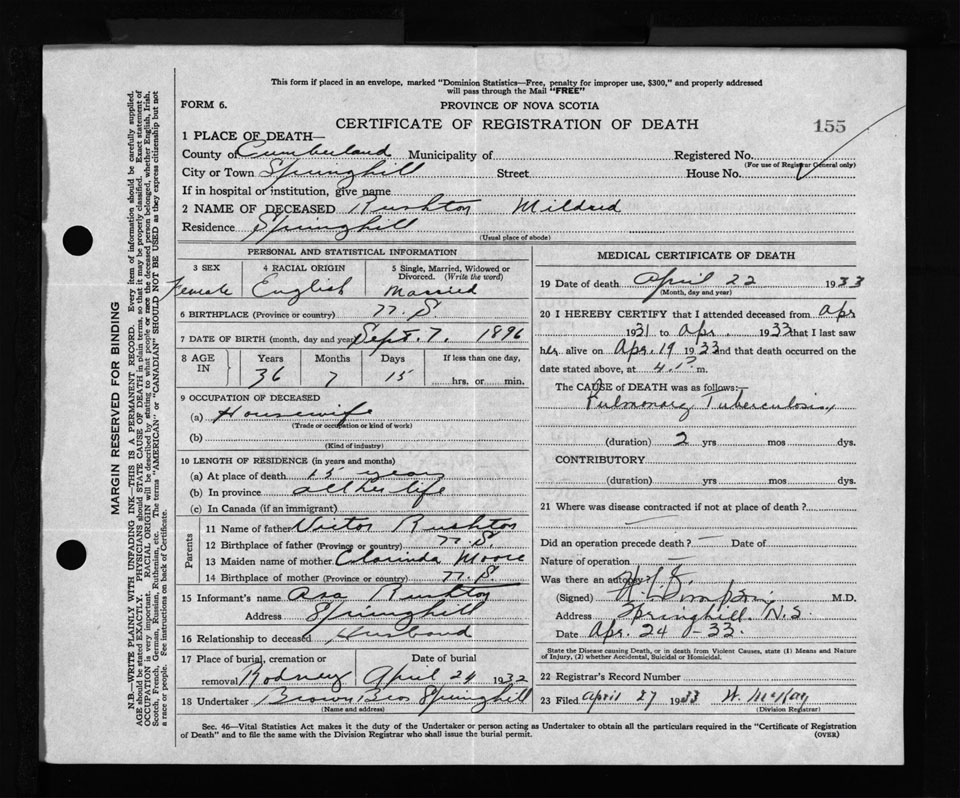 This form if placed in an envelope, marked "Dominion Statistics—Free, penalty for improper use, $300," and properly addressed
will pass through the Mail "FREE"
FORM 6.
PROVINCE OF NOVA SCOTIA
CERTIFICATE OF REGISTRATION OF DEATH
155
1 PLACE OF DEATH—
County of Cumberland Municipality of
Registered No.
(For use of Registrar General only)
City or Town Springhill Street House No.
If in hospital or institution, give name
2 NAME OF DECEASED Rushton Mildred
Residence Springhill
(Usual place of abode)
PERSONAL AND STATISTICAL INFORMATION
3 SEX Female
4 RACIAL ORIGIN English
5 Single, Married, Widowed or Divorced. (Write the word) Married
6 BIRTHPLACE (Province or country) N.S.
7 DATE OF BIRTH (month, day and year) Sept. 7. 1896
8 AGE IN Years Months Days If less than one day,
36 7 15 hrs. or min.
9 OCCUPATION OF DECEASED
(a) Housewife
(Trade or occupation or kind of work)
(b)
(Kind of industry)
10 LENGTH OF RESIDENCE (in years and months)
(a) At place of death 15 years
(b) In province all her life
(c) In Canada (if an immigrant)
Parents
11 Name of father Victor Rushton
12 Birthplace of father (Province or country) N.S.
13 Maiden name of mother Clorinda Moore
14 Birthplace of mother (Province or country) N.S.
15 Informant's name Asa Rushton
Address Springhill
16 Relationship to deceased Husband
17 Place of burial, cremation or removal Rodney
Date of burial April 24 1932
18 Undertaker Brown Bro. Springhill
(Name and address)
MEDICAL CERTIFICATE OF DEATH
19 Date of death April 22 1933
(Month, day and year)
20 I HEREBY CERTIFY that I attended deceased from Apr
1931 to Apr. 1933 that I last saw
her alive on Apr. 19 1933 and that death occurred on the
date stated above, at 4.1? m.
The CAUSE of DEATH was as follows:—
Pulmonary Tuberculosis
(duration) 2 yrs mos dys.
CONTRIBUTORY
(duration) yrs mos dys.
21 Where was disease contracted if not at place of death?
Did an operation precede death? — Date of
Nature of operation —
Was there an autopsy
(Signed) M.D.
Address Springhill N.S.
Date Apr. 24 - 33.
State the Disease causing Death, or in death from Violent Causes, state (1) Means and
Nature of Injury, (2) whether Accidental, Suicidal or Homicidal.
22 Registrar's Record Number
23 Filed April 27 1933 W. McKay
(Division Registrar)
Sec. 46—Vital Statistics Act makes it the duty of the Undertaker or person acting as Undertaker to obtain all the particulars required in the "Certificate of Registration
of Death" and to file the same with the Division Registrar who shall issue the burial permit.
(OVER)
MARGIN RESERVED FOR BINDING
N.B.—WRITE PLAINLY WITH UNFADING INK—THIS IS A PERMANENT RECORD. Every item of information should be carefully supplied.
AGE should be stated EXACTLY. PHYSICIANS should STATE CAUSE OF DEATH in plain terms, so that it may be properly classified. Exact statement of
OCCUPATION is very important. RACIAL ORIGIN will be described by stating to what people or race the deceased person belonged, whether English, Irish,
Scotch, French, German, Russian, Ruthenian, etc. The terms "AMERICAN" or "CANADIAN" SHOULD NOT BE USED as they express citizenship but not
a race or people. See instructions on back of Certificate.